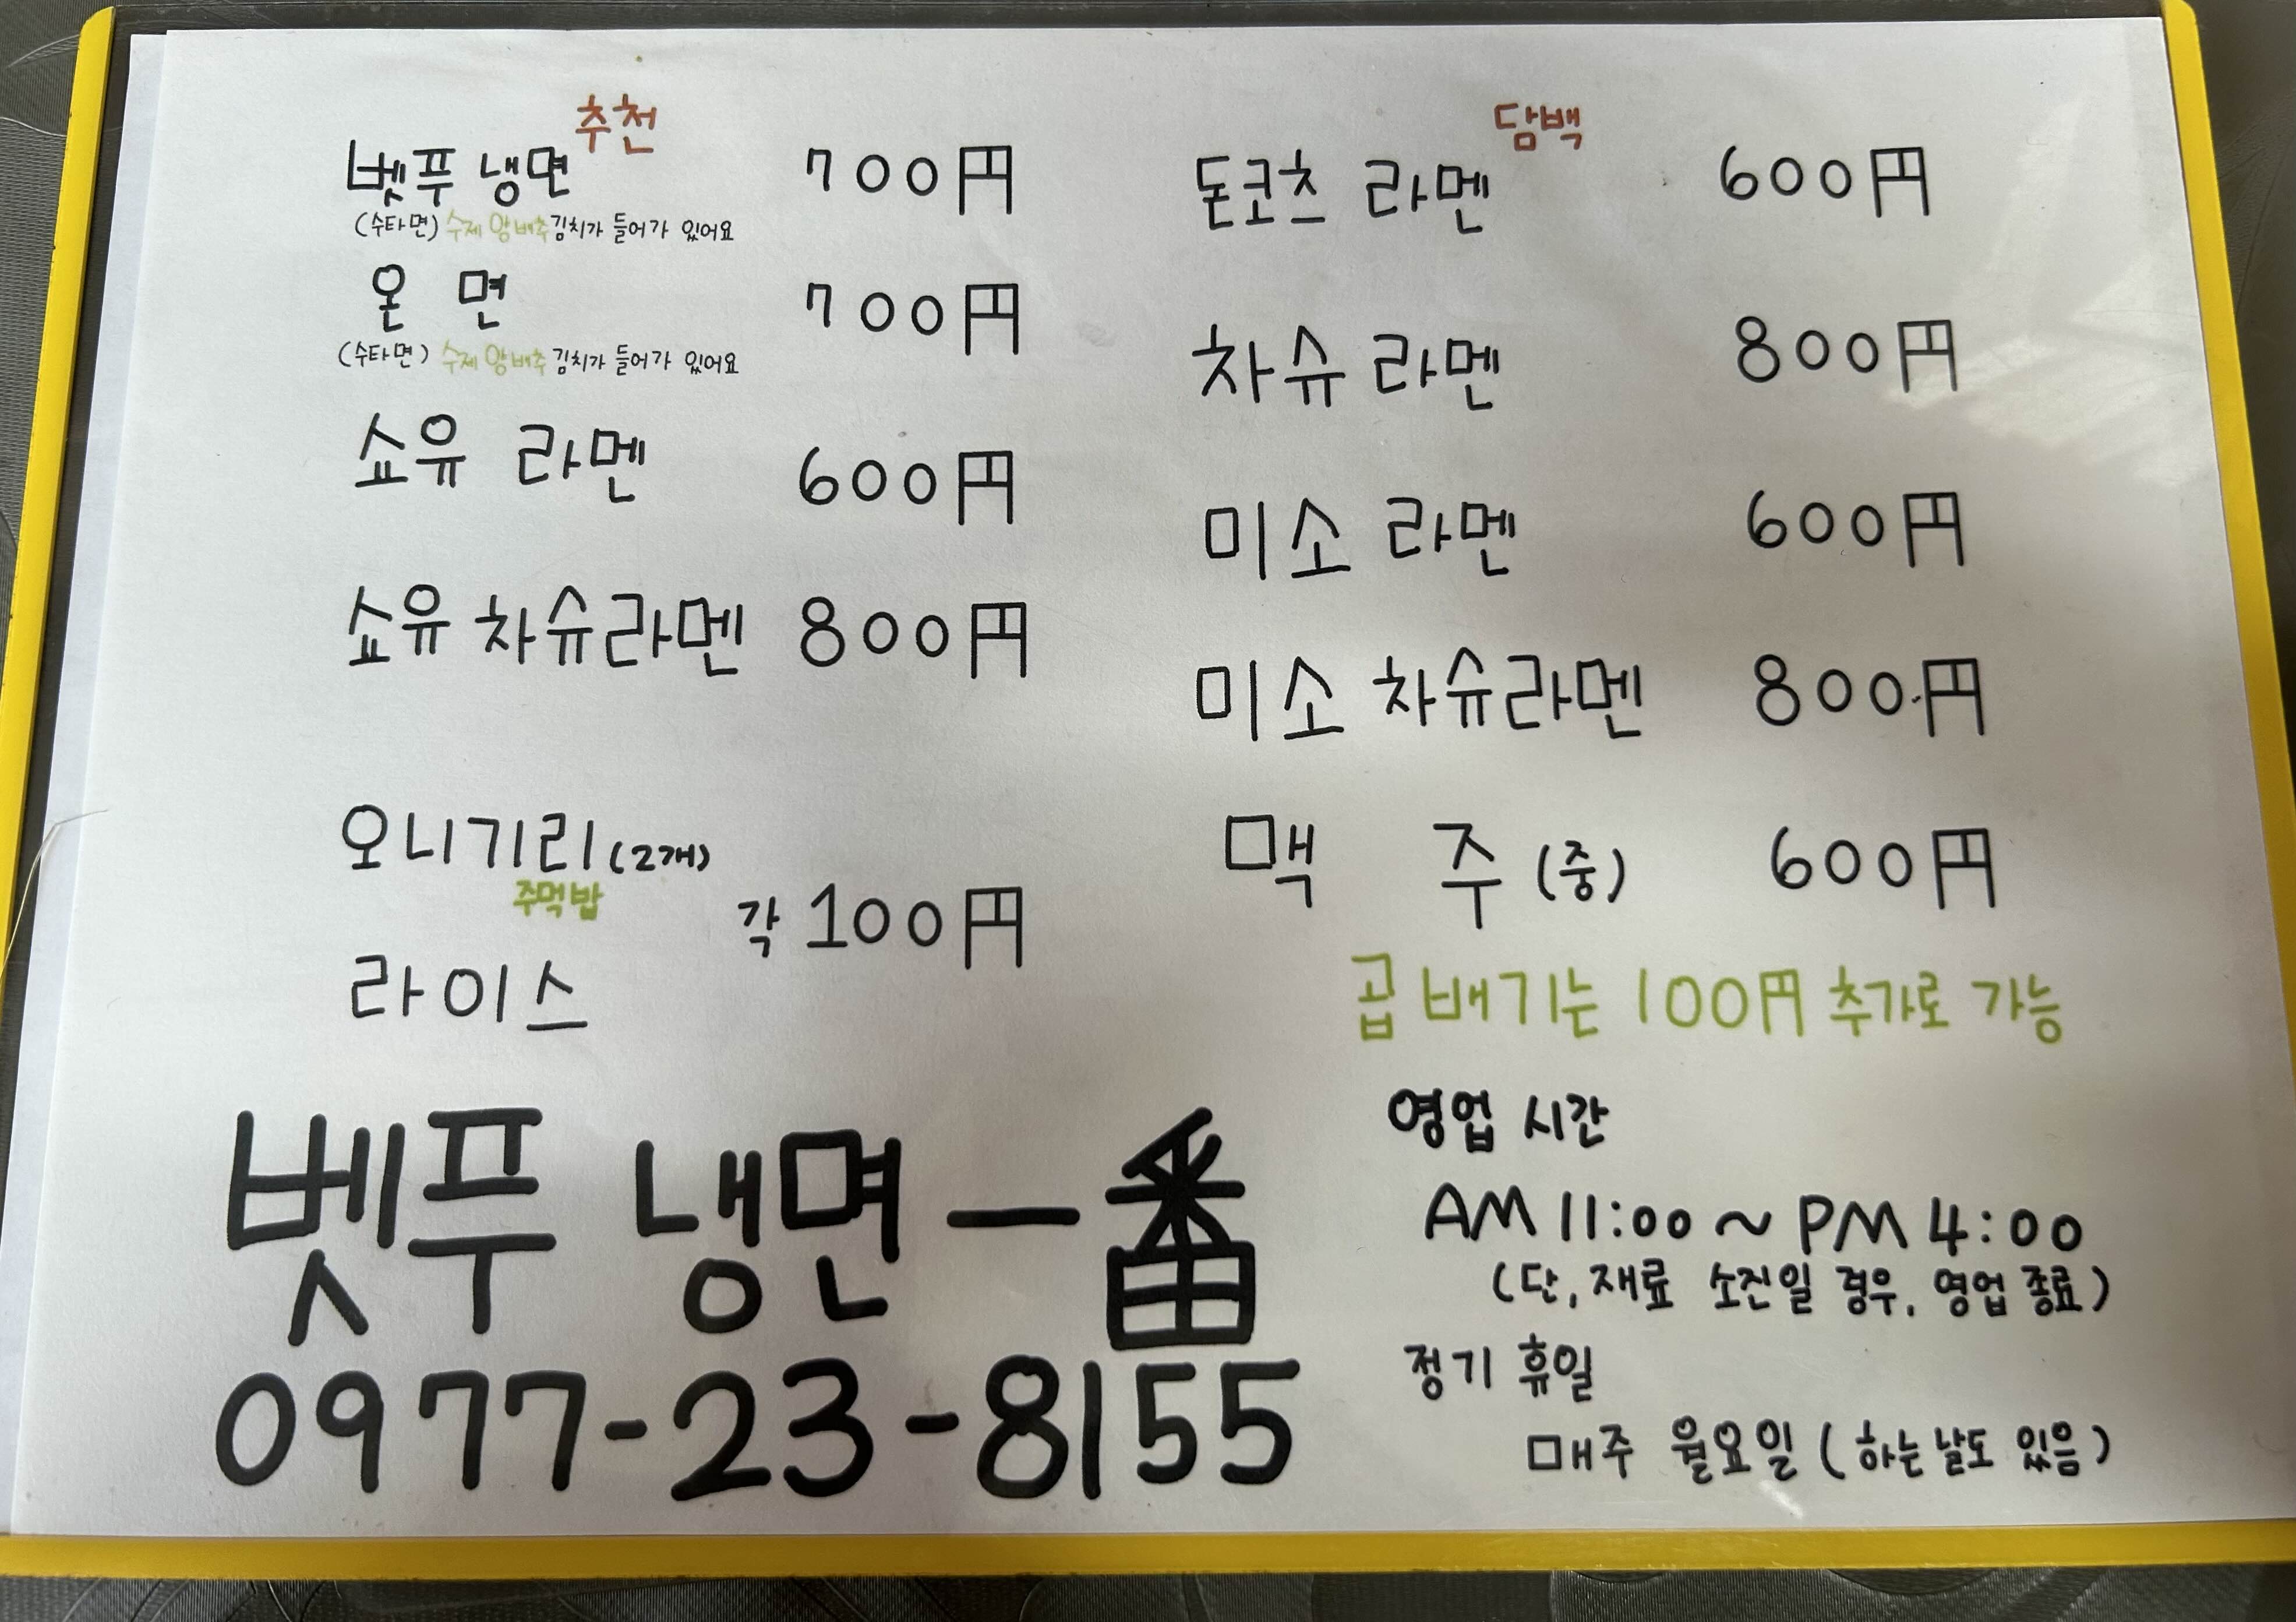 추천
벳푸 냉면 700円
(수타면) 수제 양배추김치가 들어가 있어요
온 면 700円
(수타면) 수제 양배추김치가 들어가 있어요
쇼유 라멘 600円
쇼유 차슈라멘 800円
오니기리(2개)
주먹밥
각 100円
라이스
담백
돈코츠 라멘 600円
차슈 라멘 800円
미소 라멘 600円
미소 차슈라멘 800円
맥 주 (중) 600円
곱배기는 100円 추가로 가능
벳푸 냉면 一番
0977-23-8155
영업 시간
AM 11:00 ~ PM 4:00
(단, 재료 소진일 경우, 영업 종료)
정기 휴일
매주 월요일 (하는 날도 있음)